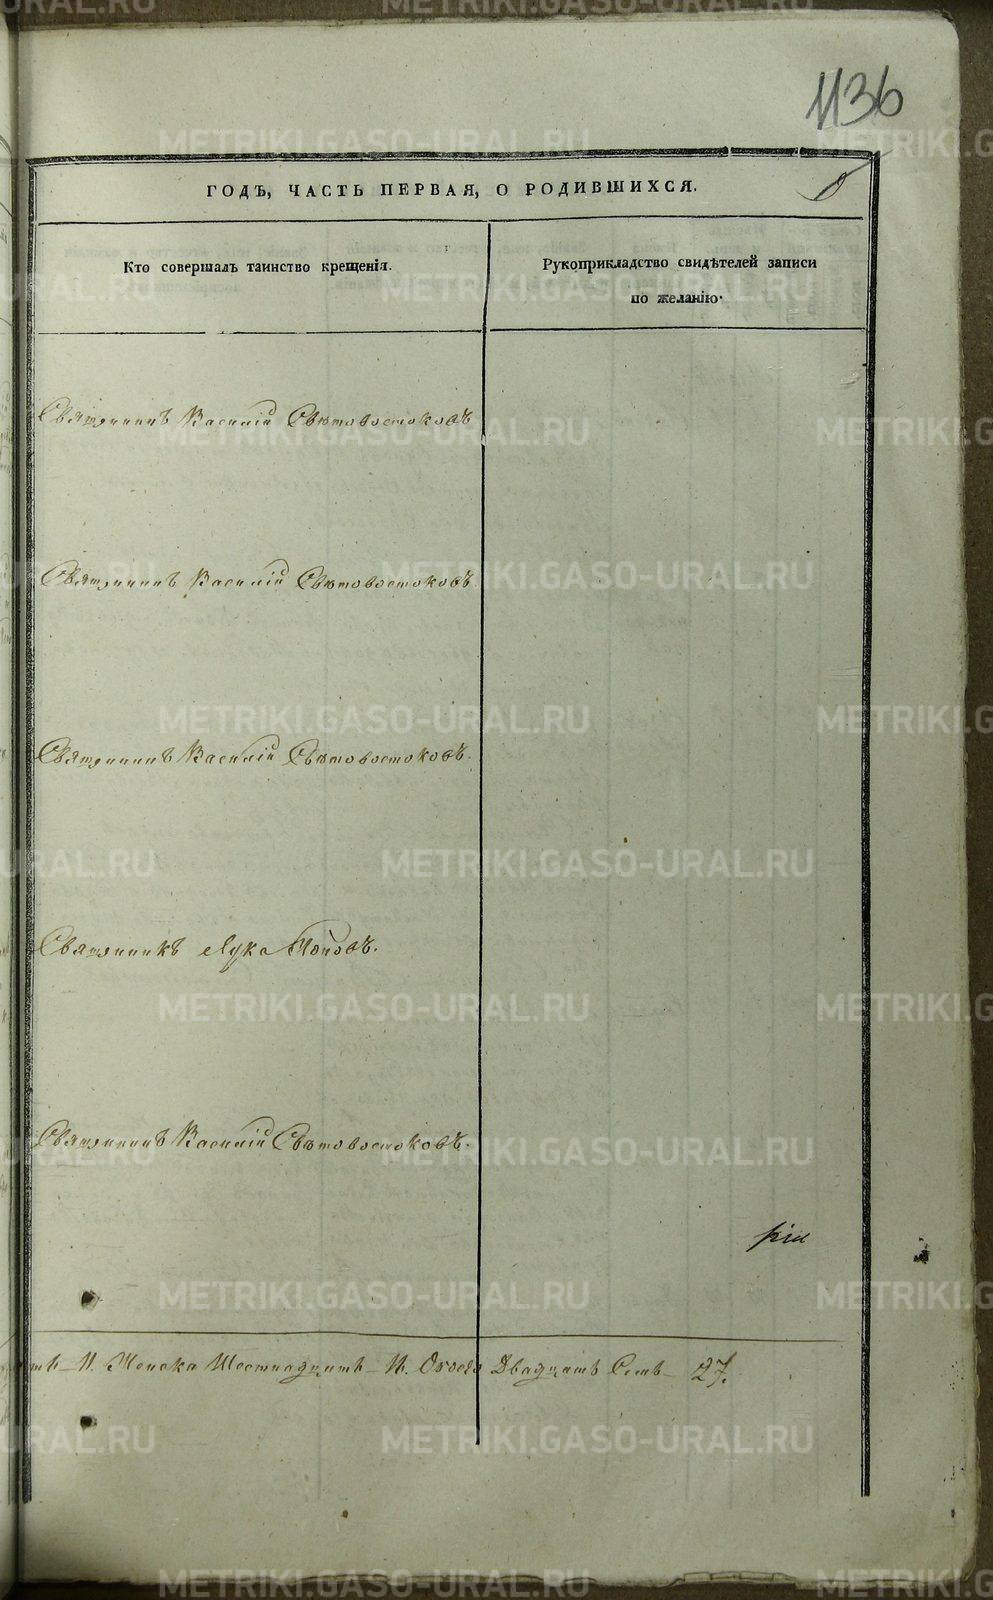 1136
ГОДЪ, ЧАСТЬ ПЕРВАЯ, О РОДИВШИХСЯ.
Кто совершалъ таинство крещенія.
Рукоприкладство свидѣтелей записи
по желанію.
Священникъ Василій Свѣтовостоковъ
Священникъ Василій Свѣтовостоковъ.
Священникъ Василій Свѣтовостоковъ.
Священникъ Лука Поповъ.
Священникъ Василій Свѣтовостоковъ.
Женска Шестнадцать И. Обоего Двадцать Семь 27.
METRIKI.GASO-URAL.RU